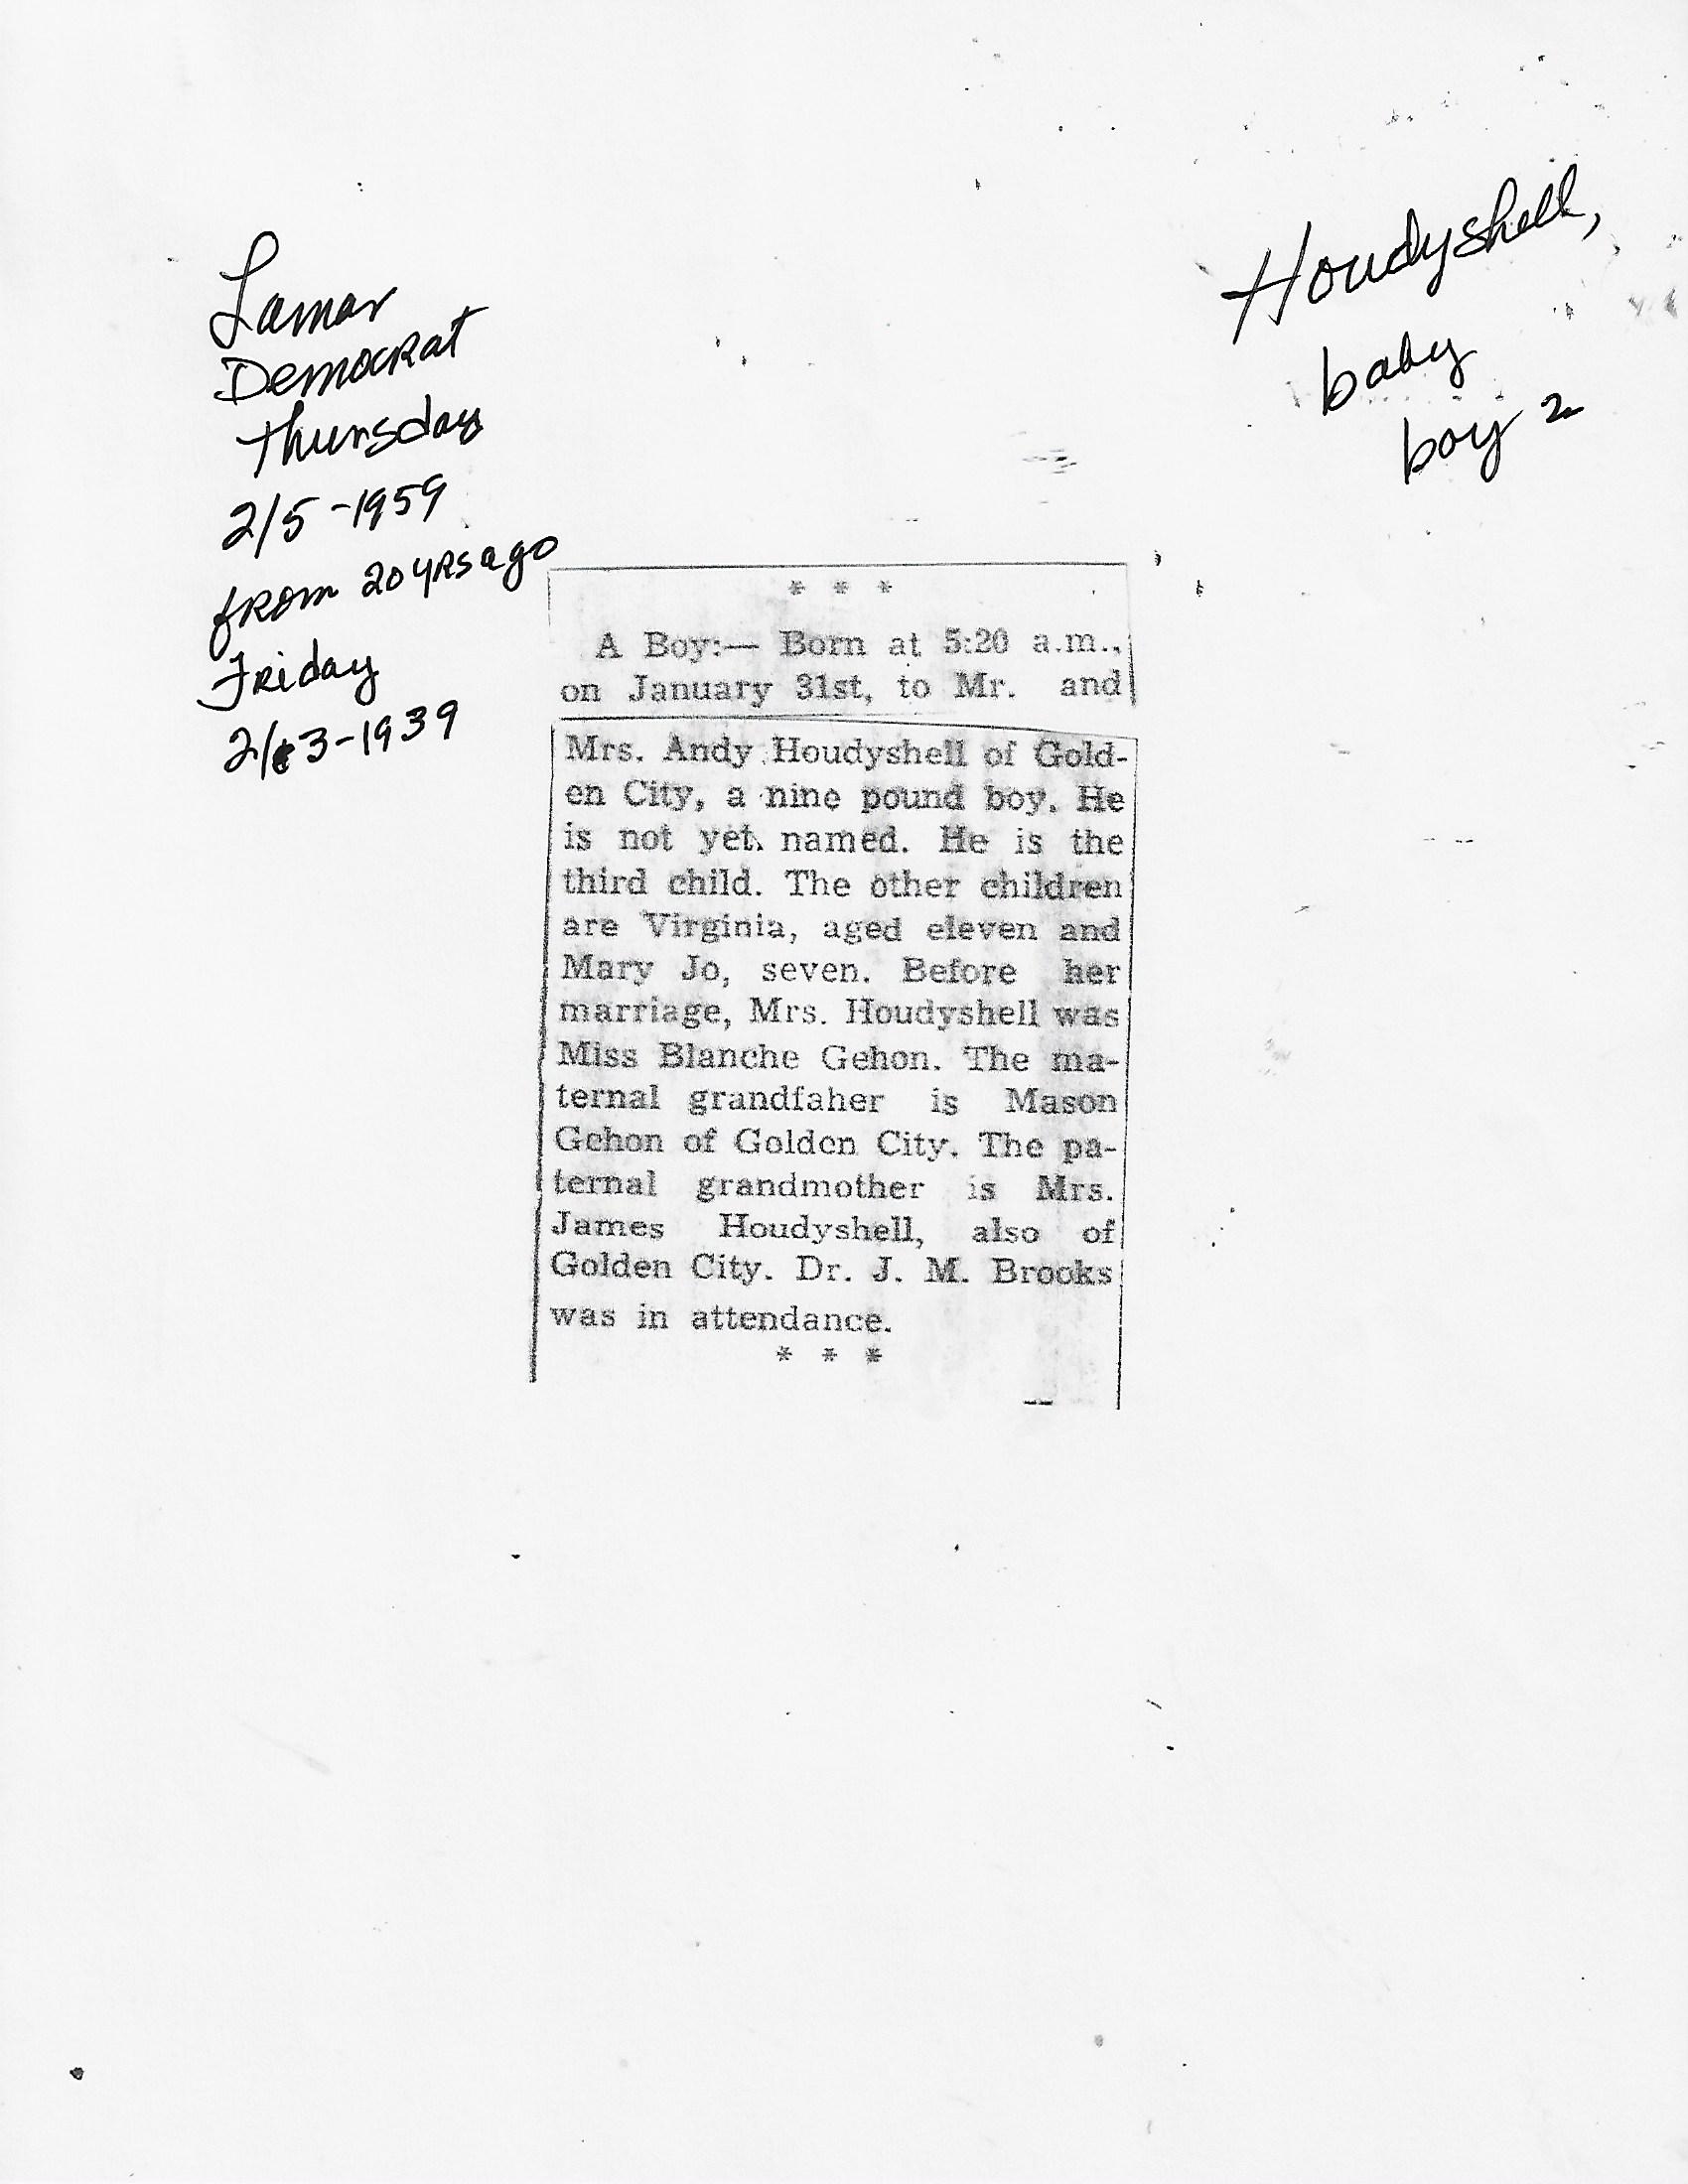 Lamar
Democrat
Thursday
2/5-1959
from 20 yrs ago
Friday
2/3-1939
Houdyshell,
baby
boy 2
* * *
A Boy:— Born at 5:20 a.m.,
on January 31st, to Mr. and
Mrs. Andy Houdyshell of Gold-
en City, a nine pound boy. He
is not yet named. He is the
third child. The other children
are Virginia, aged eleven and
Mary Jo, seven. Before her
marriage, Mrs. Houdyshell was
Miss Blanche Gehon. The ma-
ternal grandfaher is Mason
Gehon of Golden City. The pa-
ternal grandmother is Mrs.
James Houdyshell, also of
Golden City. Dr. J. M. Brooks
was in attendance.
* * *